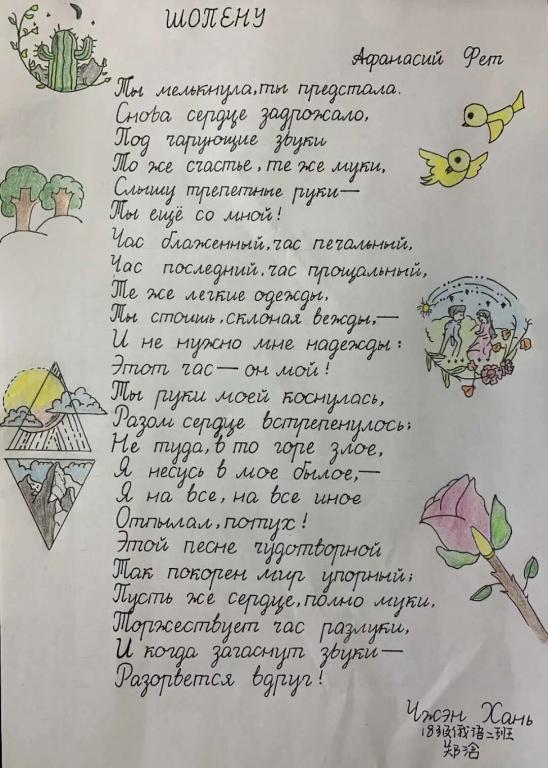 ШОПЕНУ
Афанасий Фет
Ты мелькнула, ты предстала.
Снова сердце задрожало,
Под чарующие звуки
То же счастье, те же муки,
Слышу трепетные руки—
Ты ещё со мной!
Час блаженный, час печальный,
Час последний, час прощальный,
Те же легкие одежды,
Ты стоишь, склоная вежды,—
И не нужно мне надежды:
Этот час—он мой!
Ты руки моей коснулась,
Разом сердце встрепенулось;
Не туда, в то горе злое,
Я несусь в мое былое,—
Я на все, на все иное
Отпылал, потух!
Этой песне чудотворной
Так покорен мир упорный;
Пусть же сердце, полно муки,
Торжествует час разлуки,
И когда загаснут звуки—
Разорвется вдруг!
Чжэн Хань
18级俄语二班
郑浛